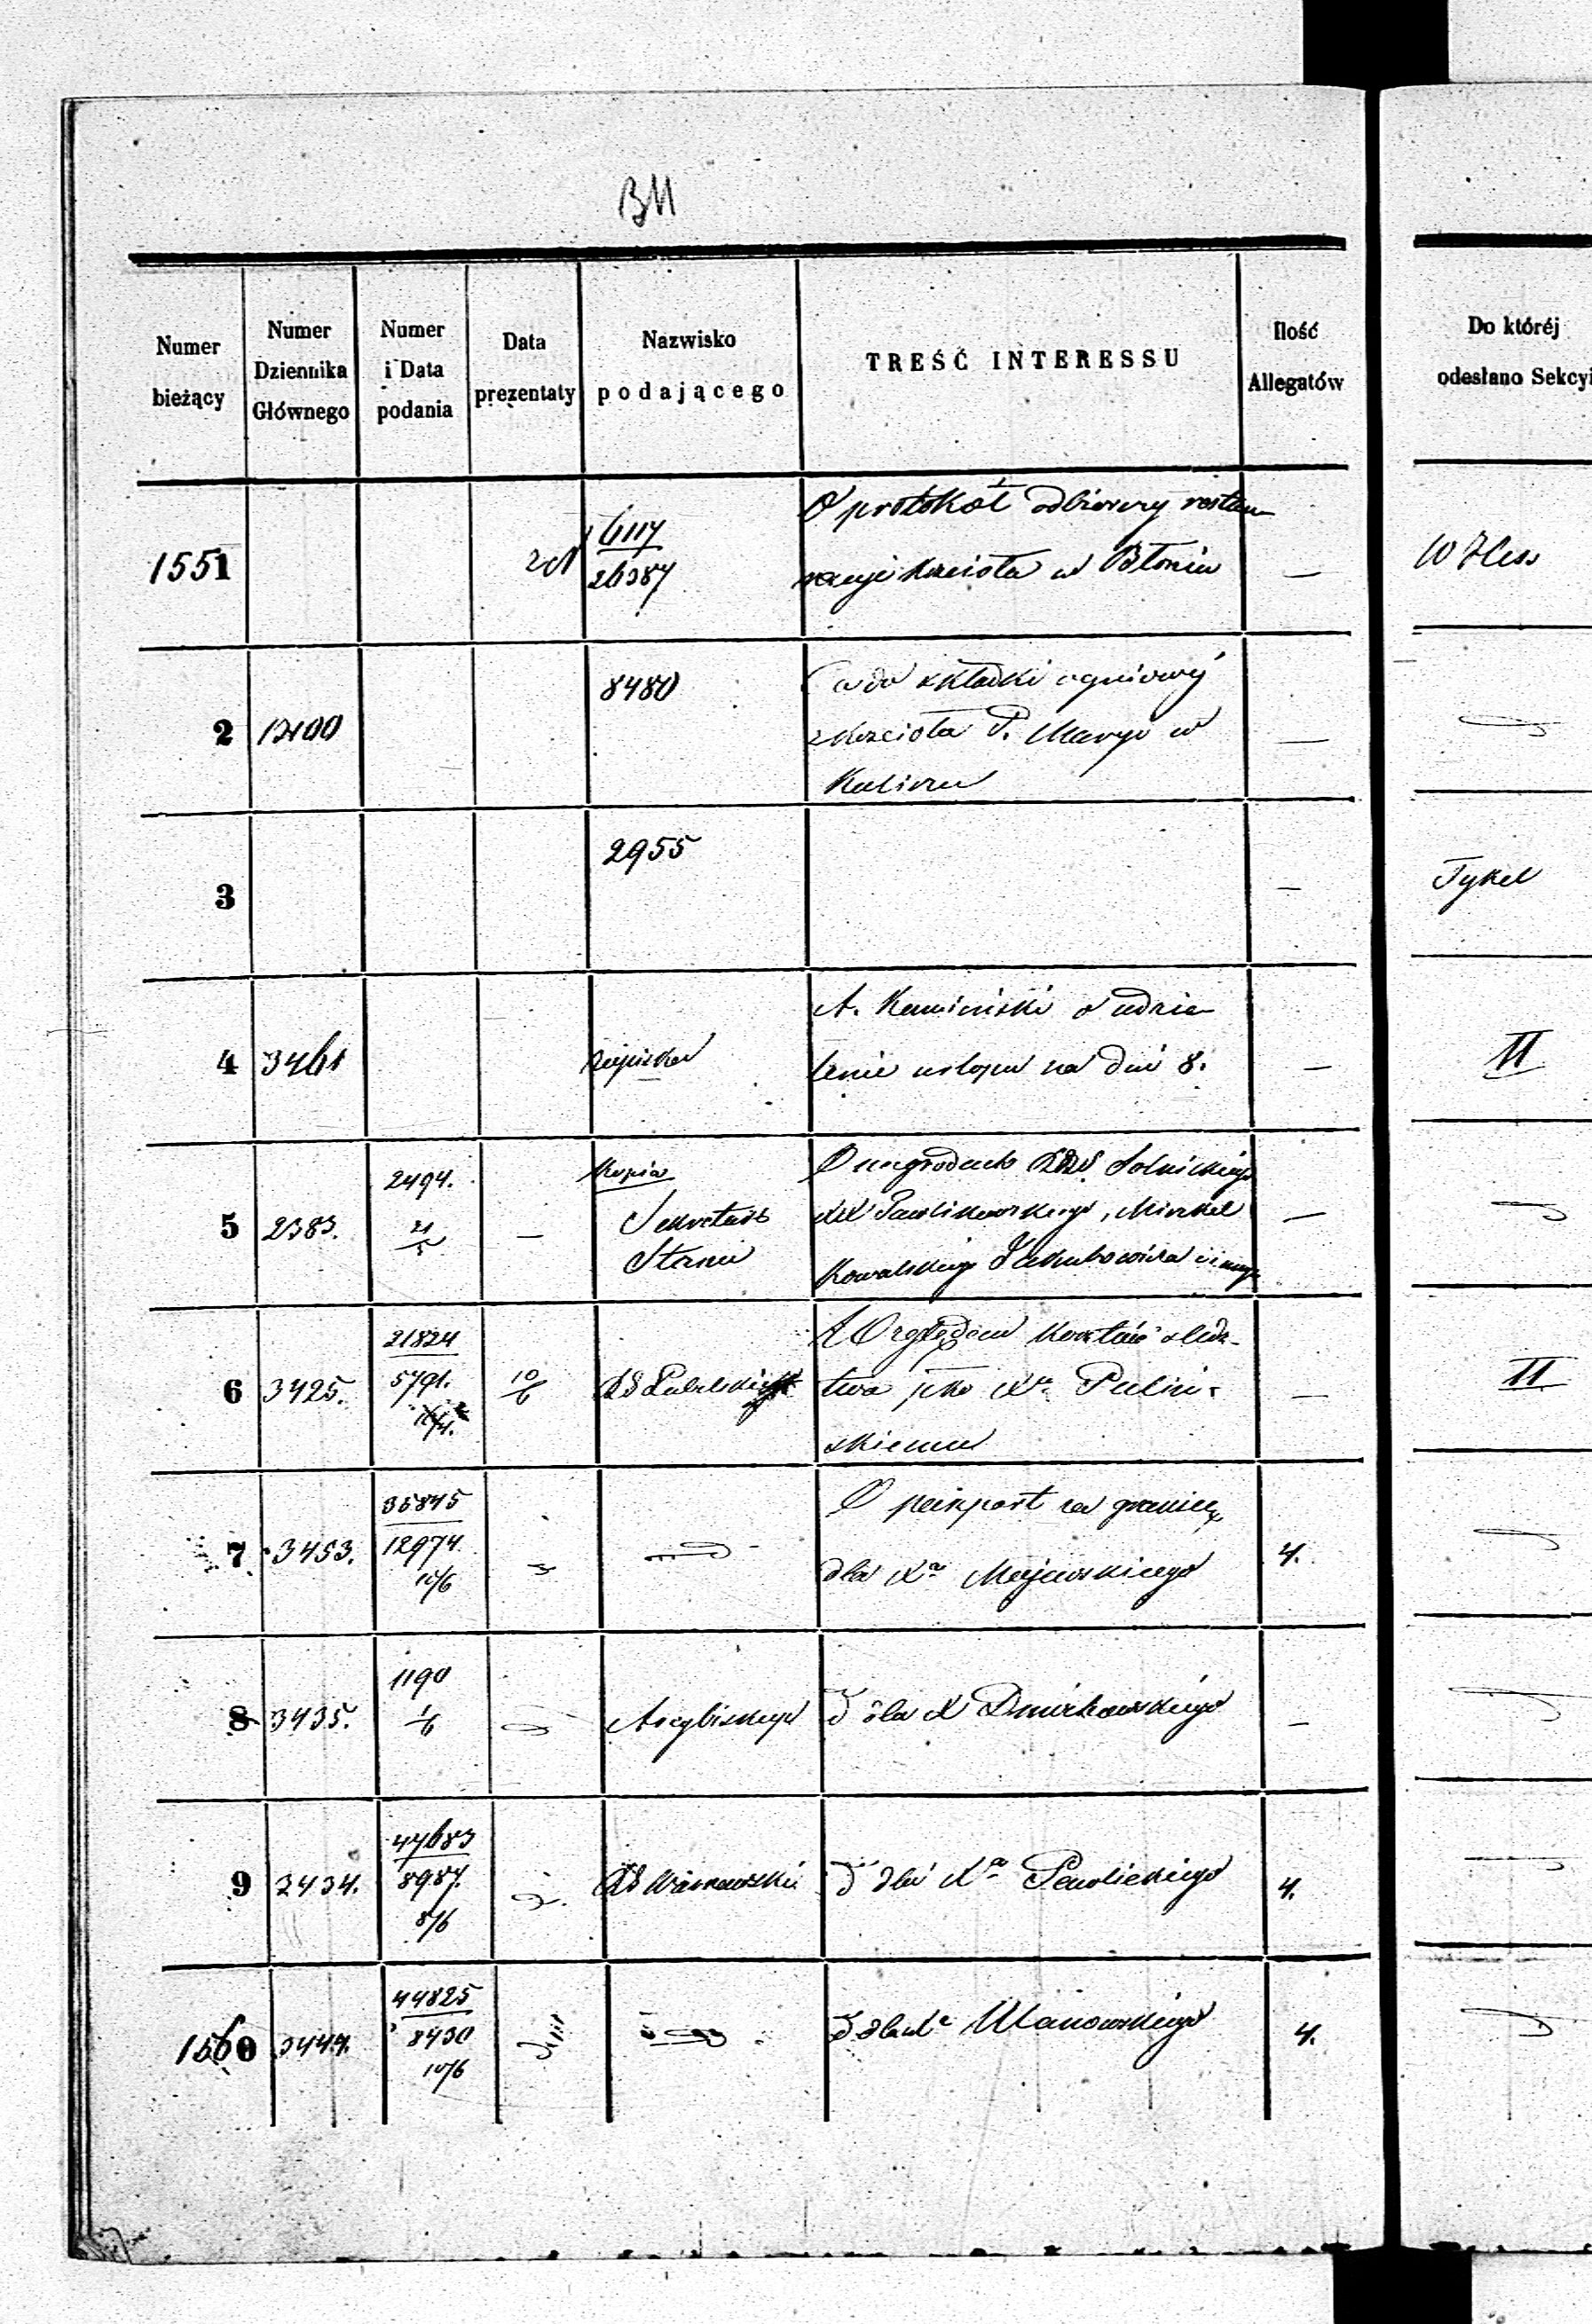 BM
Numer bieżący
Numer Dziennika Głównego
Numer i Data podania
Data prezentaty
Nazwisko podającego
TREŚĆ INTERESSU
Ilość Allegatów
Do któréj odesłano Sekcyi
1551
6117
26387
O protokół odbiorczy restau
racyi kościoła w Błoniu
—
W Hess
2
8480
Co do składki ogniowéj
z kościoła P. Maryi w
Kaliszu
—
3
2955
—
Tykel
4 3461
A. Kamiński o udzie
lenie urlopu na dni 8.
—
II
5 2383.
2494.
21/5
—
Kopia
Sekretarz
Stanu
O nagrodach
Solnickiego
XX Pawlikowskiego,
Kowalskiego Jakubowicza i innych
—
6 3425.
21824
5791.
10/6
RG Lubelski
Względem kosztów śledz-
twa pko Xa Puliń-
skiemu
—
II
7 3453.
35845
12974
10/6
O paszport za granicę
dla Xa Majewskiego
4.
8 3435.
1190
1/6
Arcybiskup
dla X
—
9 3434.
47683
8987.
8/6
RG Warszawski
dla Xa Pawlickiego
4.
1560 3444.
44825
8430
10/6
dla Xa Ulanowskiego
4.